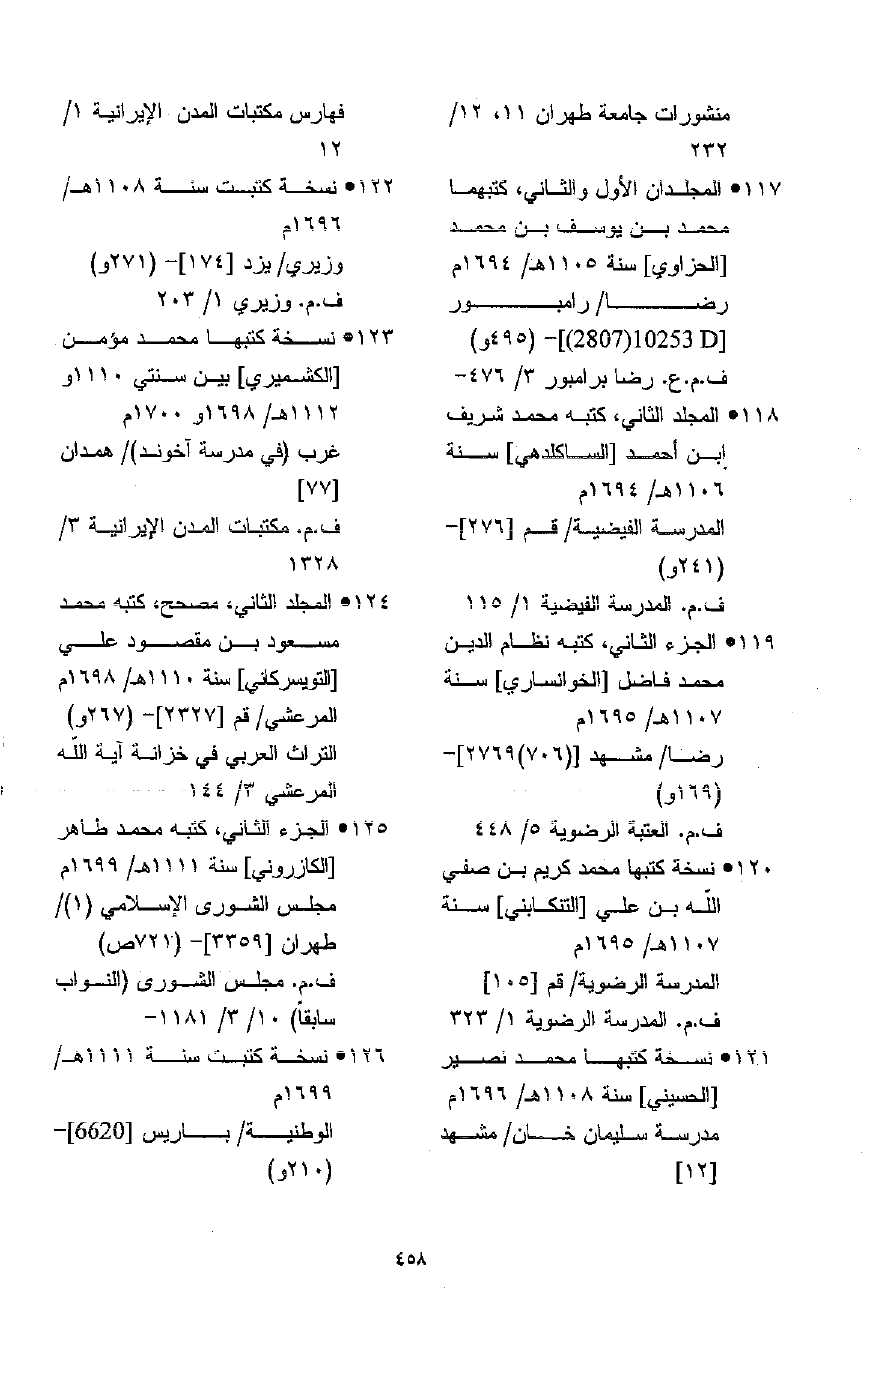 منشورات جامعة طهران ١١، ١٢/
٢٣٢
١١٧• المجلدان الأول والثاني، كتبهما
محمد بن يوسف بن محمد
[الحزاوي] سنة ١١٠٥هـ/ ١٦٩٤م
رضا/ رامبور
[10253 D(2807)]- (٤٩٥و)
ف.م.ع. رضا برامبور ٣/ ٤٧٦-
١١٨• المجلد الثاني، كتبه محمد شريف
إبن أحمد [الساكلدهي] سنة
١١٠٦هـ/ ١٦٩٤م
المدرسة الفيضية/ قم [٢٧٦]-
(٢٤١و)
ف.م. المدرسة الفيضية ١/ ١١٥
١١٩• الجزء الثاني، كتبه نظام الدين
محمد فاضل [الخوانساري] سنة
١١٠٧هـ/ ١٦٩٥م
رضا/ مشهد [(٧٠٦)٢٧٦٩]-
(١٦٩و)
ف.م. العتبة الرضوية ٥/ ٤٤٨
١٢٠• نسخة كتبها محمد كريم بن صفي
الله بن علي [التنكابني] سنة
١١٠٧هـ/ ١٦٩٥م
المدرسة الرضوية/ قم [١٠٥]
ف.م. المدرسة الرضوية ١/ ٣٢٣
١٢١• نسخة كتبها محمد نصير
[الحسيني] سنة ١١٠٨هـ/ ١٦٩٦م
مدرسة سليمان خان/ مشهد
[١٢]
فهارس مكتبات المدن الإيرانية ١/
١٢
١٢٢• نسخة كتبت سنة ١١٠٨هـ/
١٦٩٦م
وزيري/ يزد [١٧٤]- (٢٧١و)
ف.م. وزيري ١/ ٢٠٣
١٢٣• نسخة كتبها محمد مؤمن
[الكشميري] بين سنتي ١١١٠و
١١١٢هـ/ ١٦٩٨و ١٧٠٠م
غرب (في مدرسة آخوند)/ همدان
[٧٧]
ف.م. مكتبات المدن الإيرانية ٣/
١٣٢٨
١٢٤• المجلد الثاني، مصحح، كتبه محمد
مسعود بن مقصود علي
[التويسركاني] سنة ١١١٠هـ/ ١٦٩٨م
المرعشي/ قم [٢٣٢٧]- (٢٦٧و)
التراث العربي في خزانة آية الله
المرعشي ٣/ ١٤٤
١٢٥• الجزء الثاني، كتبه محمد طاهر
[الكازروني] سنة ١١١١هـ/ ١٦٩٩م
مجلس الشورى الإسلامي (١)/
طهران [٣٣٥٩]- (٧٢١ص)
ف.م. مجلس الشورى (النواب
سابقاً) ١٠/ ٣/ ١١٨١-
١٢٦• نسخة كتبت سنة ١١١١هـ/
١٦٩٩م
الوطنية/ باريس [6620]-
(٢١٠و)
٤٥٨